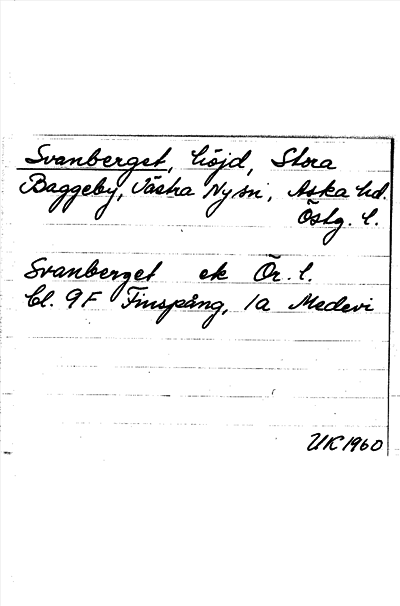 Svanberget, höjd, Stora
Baggeby, Västra Ny sn, Aska hd.
Östg. l.
Svanberget ek Ör. l.
bl. 9F Finspång, 1a Medevi
UK 1960